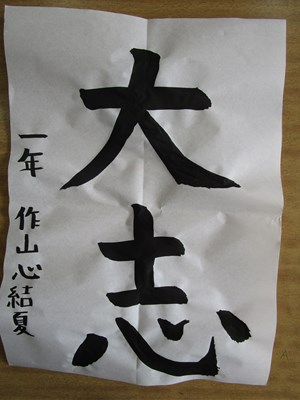 大志
一年 作山心結夏